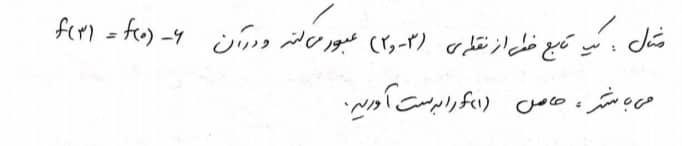 مثال : یک تابع خطی از نقطه‌ی (۲و-۳) عبور می‌کند و در آن f(۳) = f(۰) -۶
می‌باشد ، حاصل f(۱) را بدست آورید.